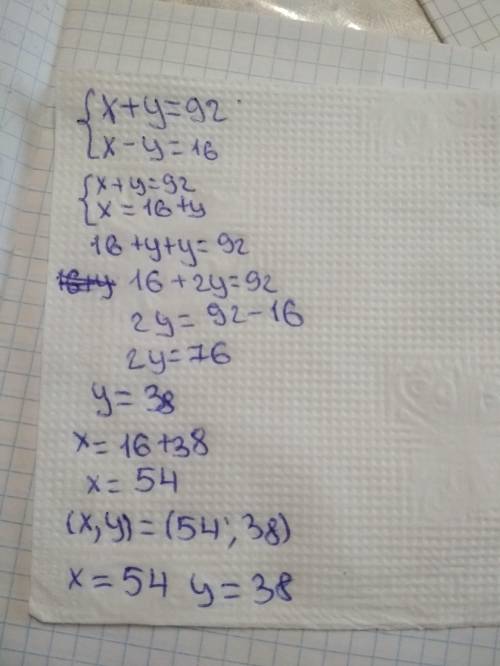 {x+y=92
x-y=16
{x+y=92
x=16+y
16+y+y=92
16+2y=92
2y=92-16
2y=76
y=38
x=16+38
x=54
(x,y)=(54;38)
x=54 y=38